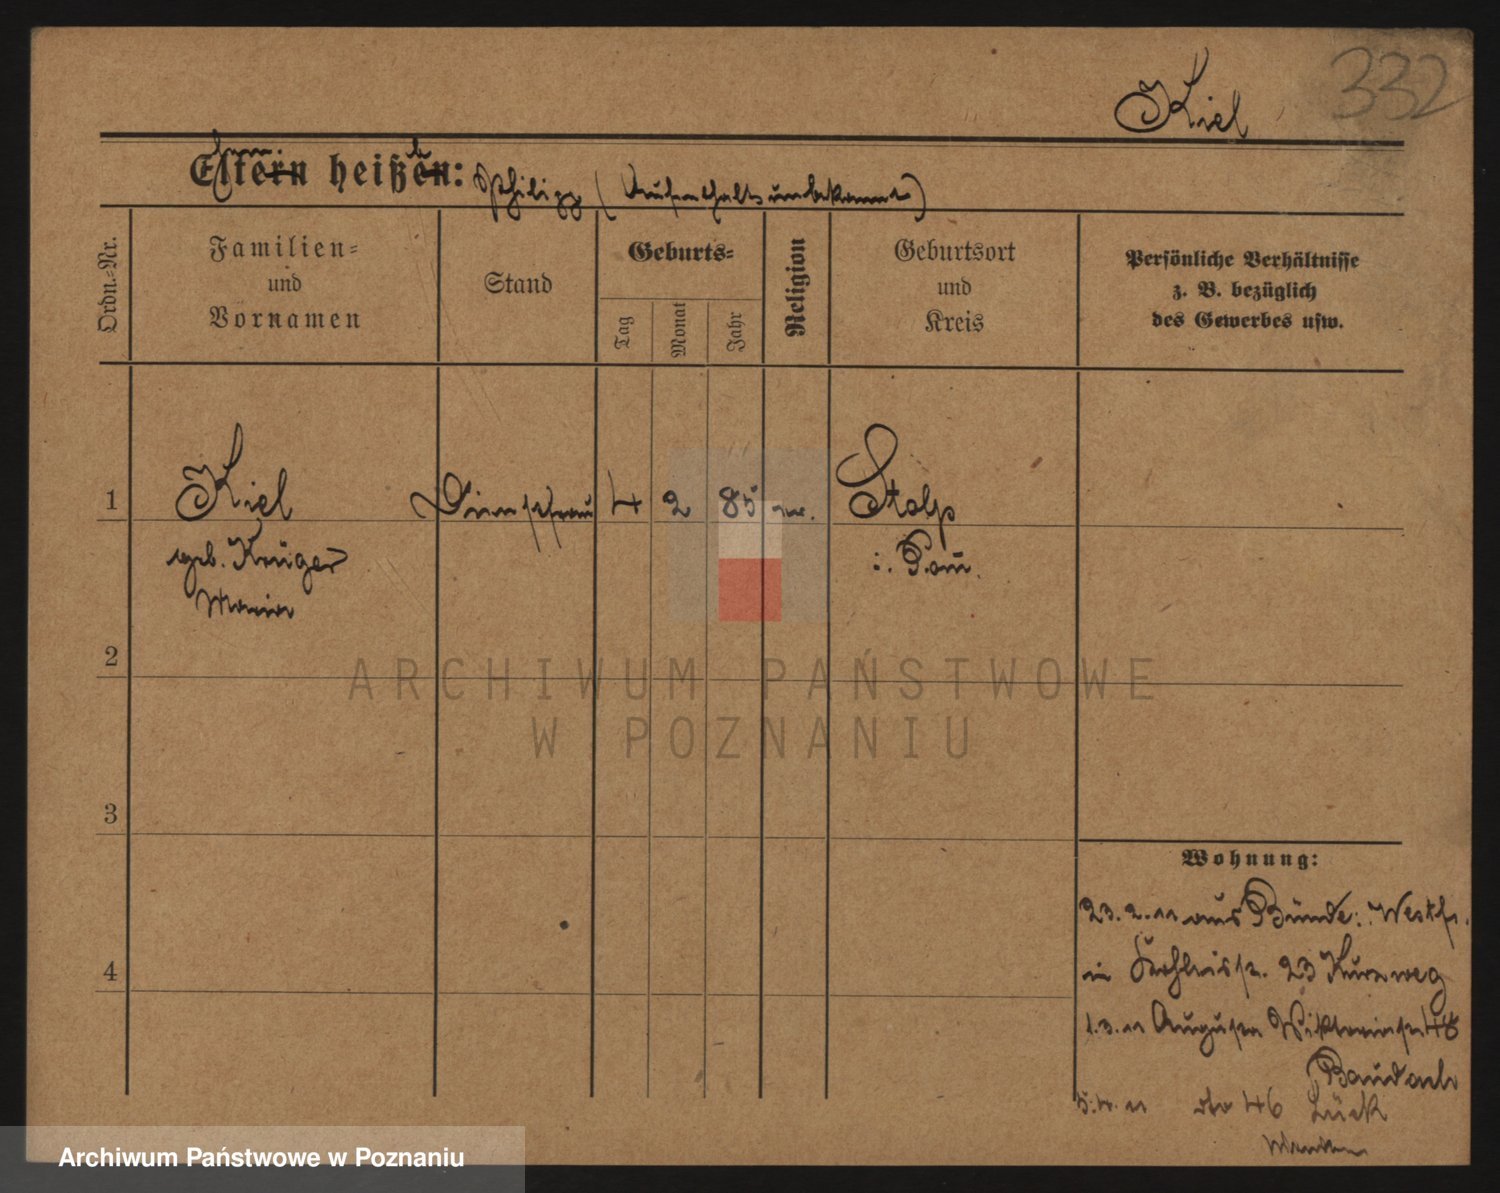 332
Kiel
Eltern heißen: Philipp (Aufenthalt unbekannt)
Ordn.-Nr.
Familien-
und
Vornamen
Stand
Geburts-
Tag
Monat
Jahr
Religion
Geburtsort
und
Kreis
Persönliche Verhältnisse
z. B. bezüglich
des Gewerbes usw.
1
Kiel
4
2
85
Stolp
geb. Krüger
i. Pom.
Maria
2
ARCHIWUM PAŃSTWOWE
W POZNANIU
3
Wohnung:
23. 2. 11 aus Bünde i. Westf.
4
in 23 Kurzweg
1. 3. 11 Augusta Viktoriastr 48
5. 4. 11 46 Lück
Archiwum Państwowe w Poznaniu